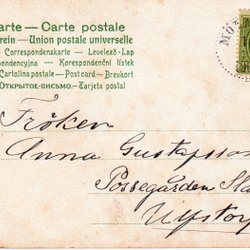 arte – Carte postale
rein – Union postale universelle
Correspondenzkarte – Levelező-Lap
ndencyjna – Korespondenční lístek
Cartolina postale – Post card – Brevkort
Открытое-письмо – Tarjeta postal
Fröken
Anna Gustafsson
Possegården